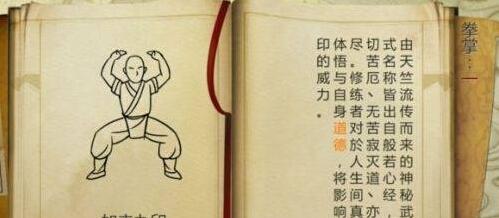 拳掌:一
由天竺流传而来的神秘武
式名称皆出自般若心经,
切苦厄、无苦寂灭道、亦
尽。修炼者对於人生间真
体悟与自身道德,将影响
印的威力。
如来九印